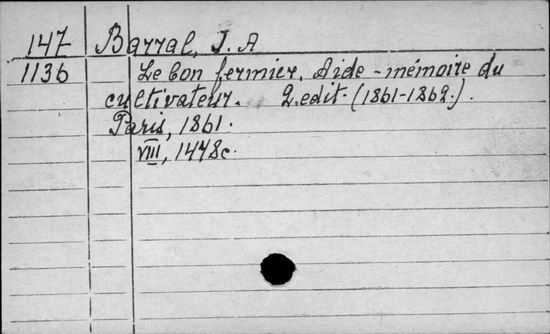 147 Barral, J. A
1136 Le bon fermier. Aide-mémoire du
cultivateur. 2. edit. (1861-1862.).
Paris, 1861.
VIII, 1478c.